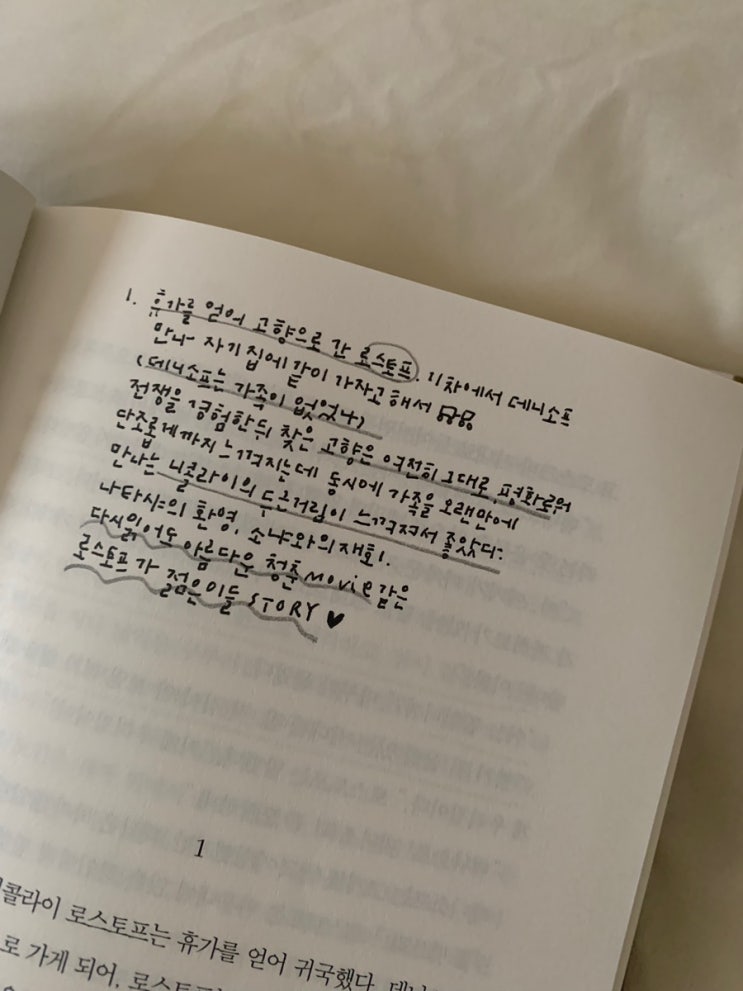 1. 휴가를 얻어 고향으로 간 로스토프. 기차에서 데니소프
만나 자기 집에 같이 가자고 해서
(데니소프는 가족이 없었나)
전쟁을 경험한 뒤 찾은 고향은 여전히 그대로, 평화로워
단조롭게까지 느껴지는데 동시에 가족을 오랜만에
만나는 니콜라이의 두근거림이 느껴져서 좋았다.
나타샤의 환영, 소냐와의 재회.
다시 읽어도 아름다운 청춘 MOVIE 같은
로스토프가 젊은이들 STORY ♥
1
콜라이 로스토프는 휴가를 얻어 귀국했다.
로 가게 되어,